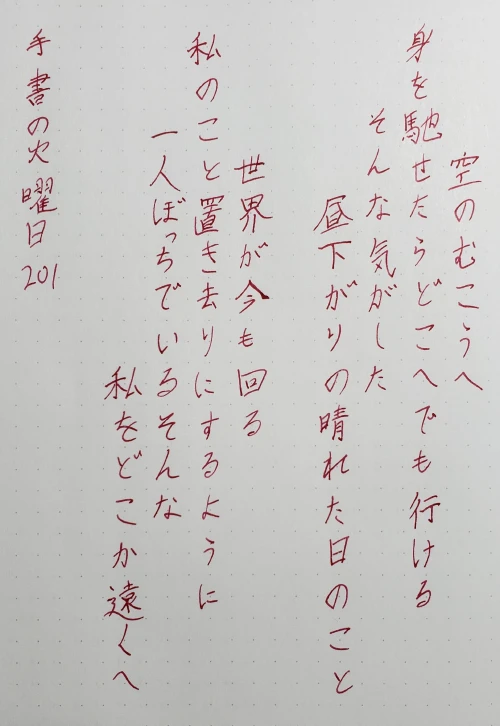 空のむこうへ
身を馳せたらどこへでも行ける
そんな気がした
昼下がりの晴れた日のこと
世界が今も回る
私のこと置き去りにするように
一人ぼっちでいるそんな
私をどこか遠くへ
手書の火曜日201